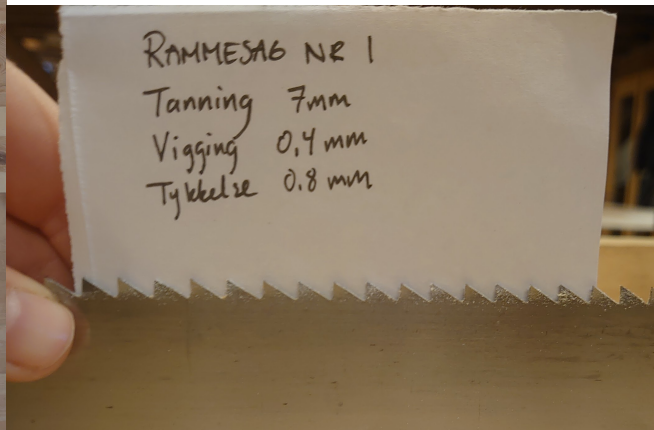 RAMMESAG NR 1
Tanning 7mm
Vigging 0,4 mm
Tykkelse 0.8 mm